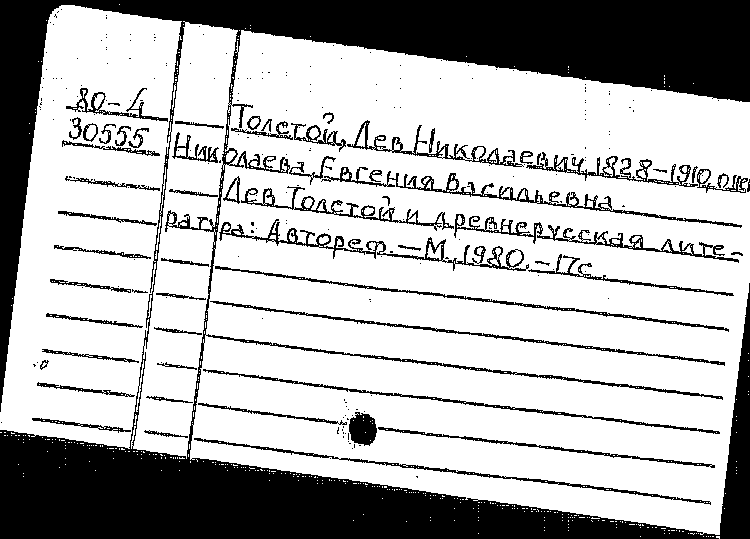 80-4 Толстой, Лев Николаевич, 1828-1910, о нем
30555 Николаева, Евгения Васильевна.
Лев Толстой и древнерусская лите-
ратура: Автореф. — М., 1980. - 17с.